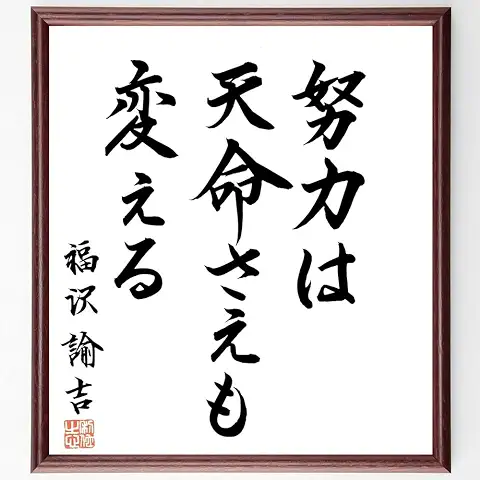 努力は
天命さえも
変える
福沢諭吉